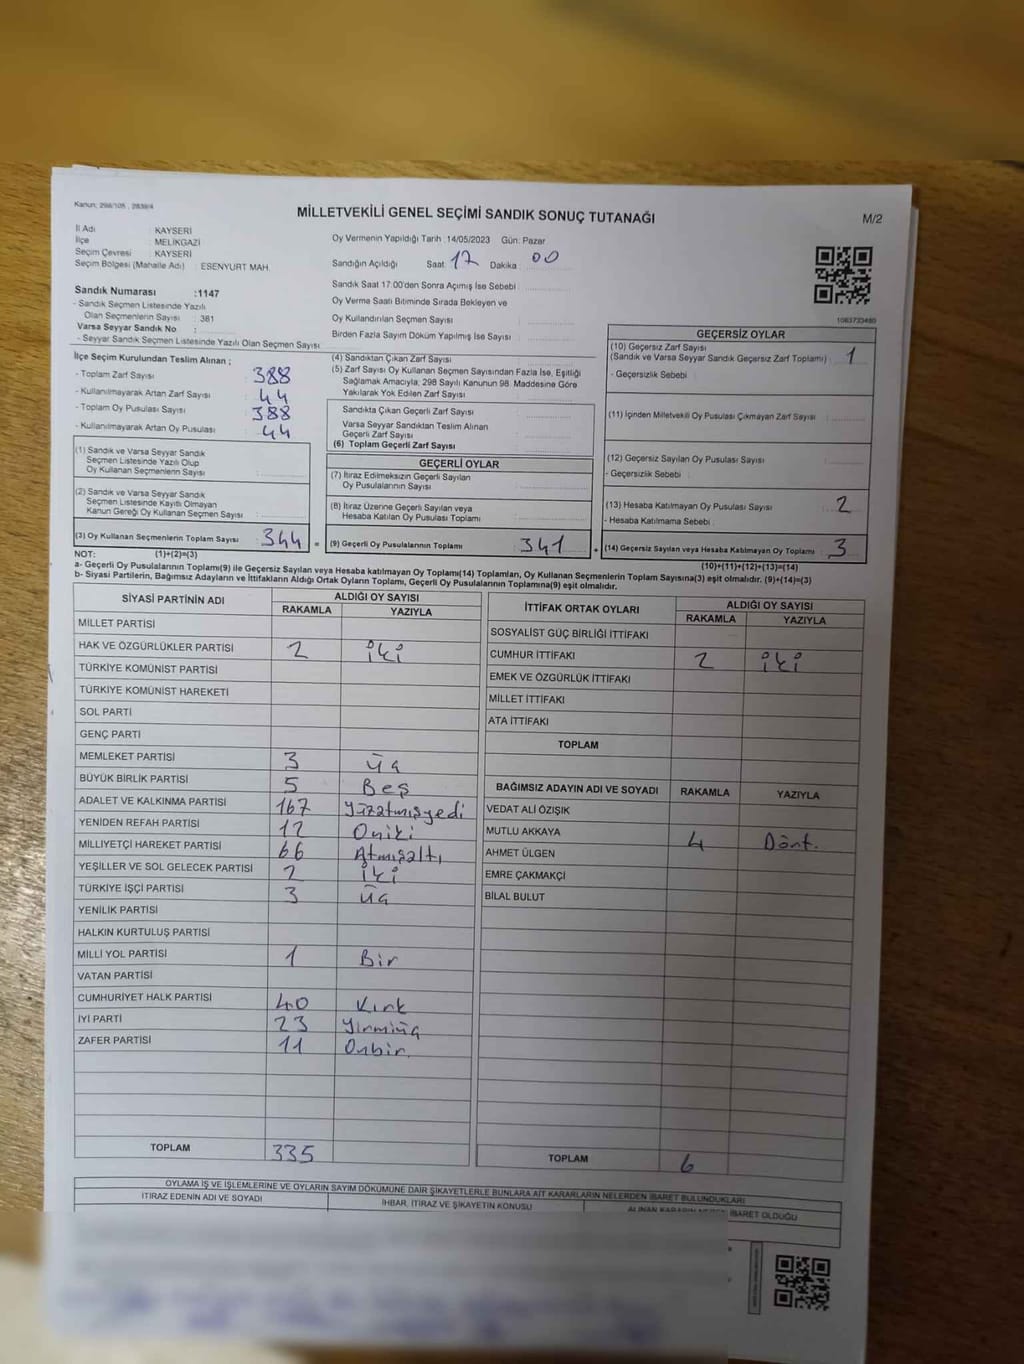 Kanun: 298/105 , 2839/4
MİLLETVEKİLİ GENEL SEÇİMİ SANDIK SONUÇ TUTANAĞI
M/2
İl Adı : KAYSERİ
İlçe : MELİKGAZİ
Seçim Çevresi : KAYSERİ
Seçim Bölgesi (Mahalle Adı) : ESENYURT MAH.
Oy Vermenin Yapıldığı Tarih :14/05/2023 Gün: Pazar
Sandığın Açıldığı Saat: 17 Dakika : 00
Sandık Saat 17:00'den Sonra Açımış İse Sebebi :
Oy Verme Saati Bitiminde Sırada Bekleyen ve
Oy Kullandırılan Seçmen Sayısı :
Birden Fazla Sayım Döküm Yapılmış İse Sayısı :
Sandık Numarası :1147
- Sandık Seçmen Listesinde Yazılı
Olan Seçmenlerin Sayısı : 381
Varsa Seyyar Sandık No :
- Seyyar Sandık Seçmen Listesinde Yazılı Olan Seçmen Sayısı :
1083733480
İlçe Seçim Kurulundan Teslim Alınan ;
- Toplam Zarf Sayısı : 388
- Kullanılmayarak Artan Zarf Sayısı : 44
- Toplam Oy Pusulası Sayısı : 388
- Kullanılmayarak Artan Oy Pusulası : 44
(1) Sandık ve Varsa Seyyar Sandık
Seçmen Listesinde Yazılı Olup
Oy Kullanan Seçmenlerin Sayısı :
(2) Sandık ve Varsa Seyyar Sandık
Seçmen Listesinde Kayıtlı Olmayan
Kanun Gereği Oy Kullanan Seçmen Sayısı :
(3) Oy Kullanan Seçmenlerin Toplam Sayısı : 344 =
(4) Sandıktan Çıkan Zarf Sayısı :
(5) Zarf Sayısı Oy Kullanan Seçmen Sayısından Fazla İse, Eşitliği
Sağlamak Amacıyla, 298 Sayılı Kanunun 98. Maddesine Göre
Yakılarak Yok Edilen Zarf Sayısı :
Sandıkta Çıkan Geçerli Zarf Sayısı :
Varsa Seyyar Sandıktan Teslim Alınan
Geçerli Zarf Sayısı :
(6) Toplam Geçerli Zarf Sayısı :
GEÇERLİ OYLAR
(7) İtiraz Edilmeksizin Geçerli Sayılan
Oy Pusulalarının Sayısı :
(8) İtiraz Üzerine Geçerli Sayılan veya
Hesaba Katılan Oy Pusulası Toplamı :
(9) Geçerli Oy Pusulalarının Toplamı : 341 +
GEÇERSİZ OYLAR
(10) Geçersiz Zarf Sayısı
(Sandık ve Varsa Seyyar Sandık Geçersiz Zarf Toplamı) : 1
- Geçersizlik Sebebi :
(11) İçinden Milletvekili Oy Pusulası Çıkmayan Zarf Sayısı :
(12) Geçersiz Sayılan Oy Pusulası Sayısı :
- Geçersizlik Sebebi :
(13) Hesaba Katılmayan Oy Pusulası Sayısı : 2
- Hesaba Katılmama Sebebi :
(14) Geçersiz Sayılan veya Hesaba Katılmayan Oy Toplamı : 3
NOT: (1)+(2)=(3) (10)+(11)+(12)+(13)=(14)
a- Geçerli Oy Pusulalarının Toplamı(9) ile Geçersiz Sayılan veya Hesaba katılmayan Oy Toplamı(14) Toplamları, Oy Kullanan Seçmenlerin Toplam Sayısına(3) eşit olmalıdır. (9)+(14)=(3)
b- Siyasi Partilerin, Bağımsız Adayların ve İttifakların Aldığı Ortak Oyların Toplamı, Geçerli Oy Pusulalarının Toplamına(9) eşit olmalıdır.
SİYASİ PARTİNİN ADI ALDIĞI OY SAYISI
RAKAMLA YAZIYLA
MİLLET PARTİSİ
HAK VE ÖZGÜRLÜKLER PARTİSİ 2 iki
TÜRKİYE KOMÜNİST PARTİSİ
TÜRKİYE KOMÜNİST HAREKETİ
SOL PARTİ
GENÇ PARTİ
MEMLEKET PARTİSİ 3 üç
BÜYÜK BİRLİK PARTİSİ 5 Beş
ADALET VE KALKINMA PARTİSİ 167 Yüzatmışyedi
YENİDEN REFAH PARTİSİ 12 Oniki
MİLLİYETÇİ HAREKET PARTİSİ 66 Atmışaltı
YEŞİLLER VE SOL GELECEK PARTİSİ 2 iki
TÜRKİYE İŞÇİ PARTİSİ 3 üç
YENİLİK PARTİSİ
HALKIN KURTULUŞ PARTİSİ
MİLLİ YOL PARTİSİ 1 Bir
VATAN PARTİSİ
CUMHURİYET HALK PARTİSİ 40 Kırk
İYİ PARTİ 23 Yirmiüç
ZAFER PARTİSİ 11 Onbir
TOPLAM 335
İTTİFAK ORTAK OYLARI ALDIĞI OY SAYISI
RAKAMLA YAZIYLA
SOSYALİST GÜÇ BİRLİĞİ İTTİFAKI
CUMHUR İTTİFAKI 2 iki
EMEK VE ÖZGÜRLÜK İTTİFAKI
MİLLET İTTİFAKI
ATA İTTİFAKI
TOPLAM
BAĞIMSIZ ADAYIN ADI VE SOYADI RAKAMLA YAZIYLA
VEDAT ALİ ÖZIŞIK
MUTLU AKKAYA 4 Dört.
AHMET ÜLGEN
EMRE ÇAKMAKÇİ
BİLAL BULUT
TOPLAM 6
OYLAMA İŞ VE İŞLEMLERİNE VE OYLARIN SAYIM DÖKÜMÜNE DAİR ŞİKAYETLERLE BUNLARA AİT KARARLARIN NELERDEN İBARET BULUNDUKLARI
İTİRAZ EDENİN ADI VE SOYADI İHBAR, İTİRAZ VE ŞİKAYETİN KONUSU ALINAN KARARIN NEDEN İBARET OLDUĞU